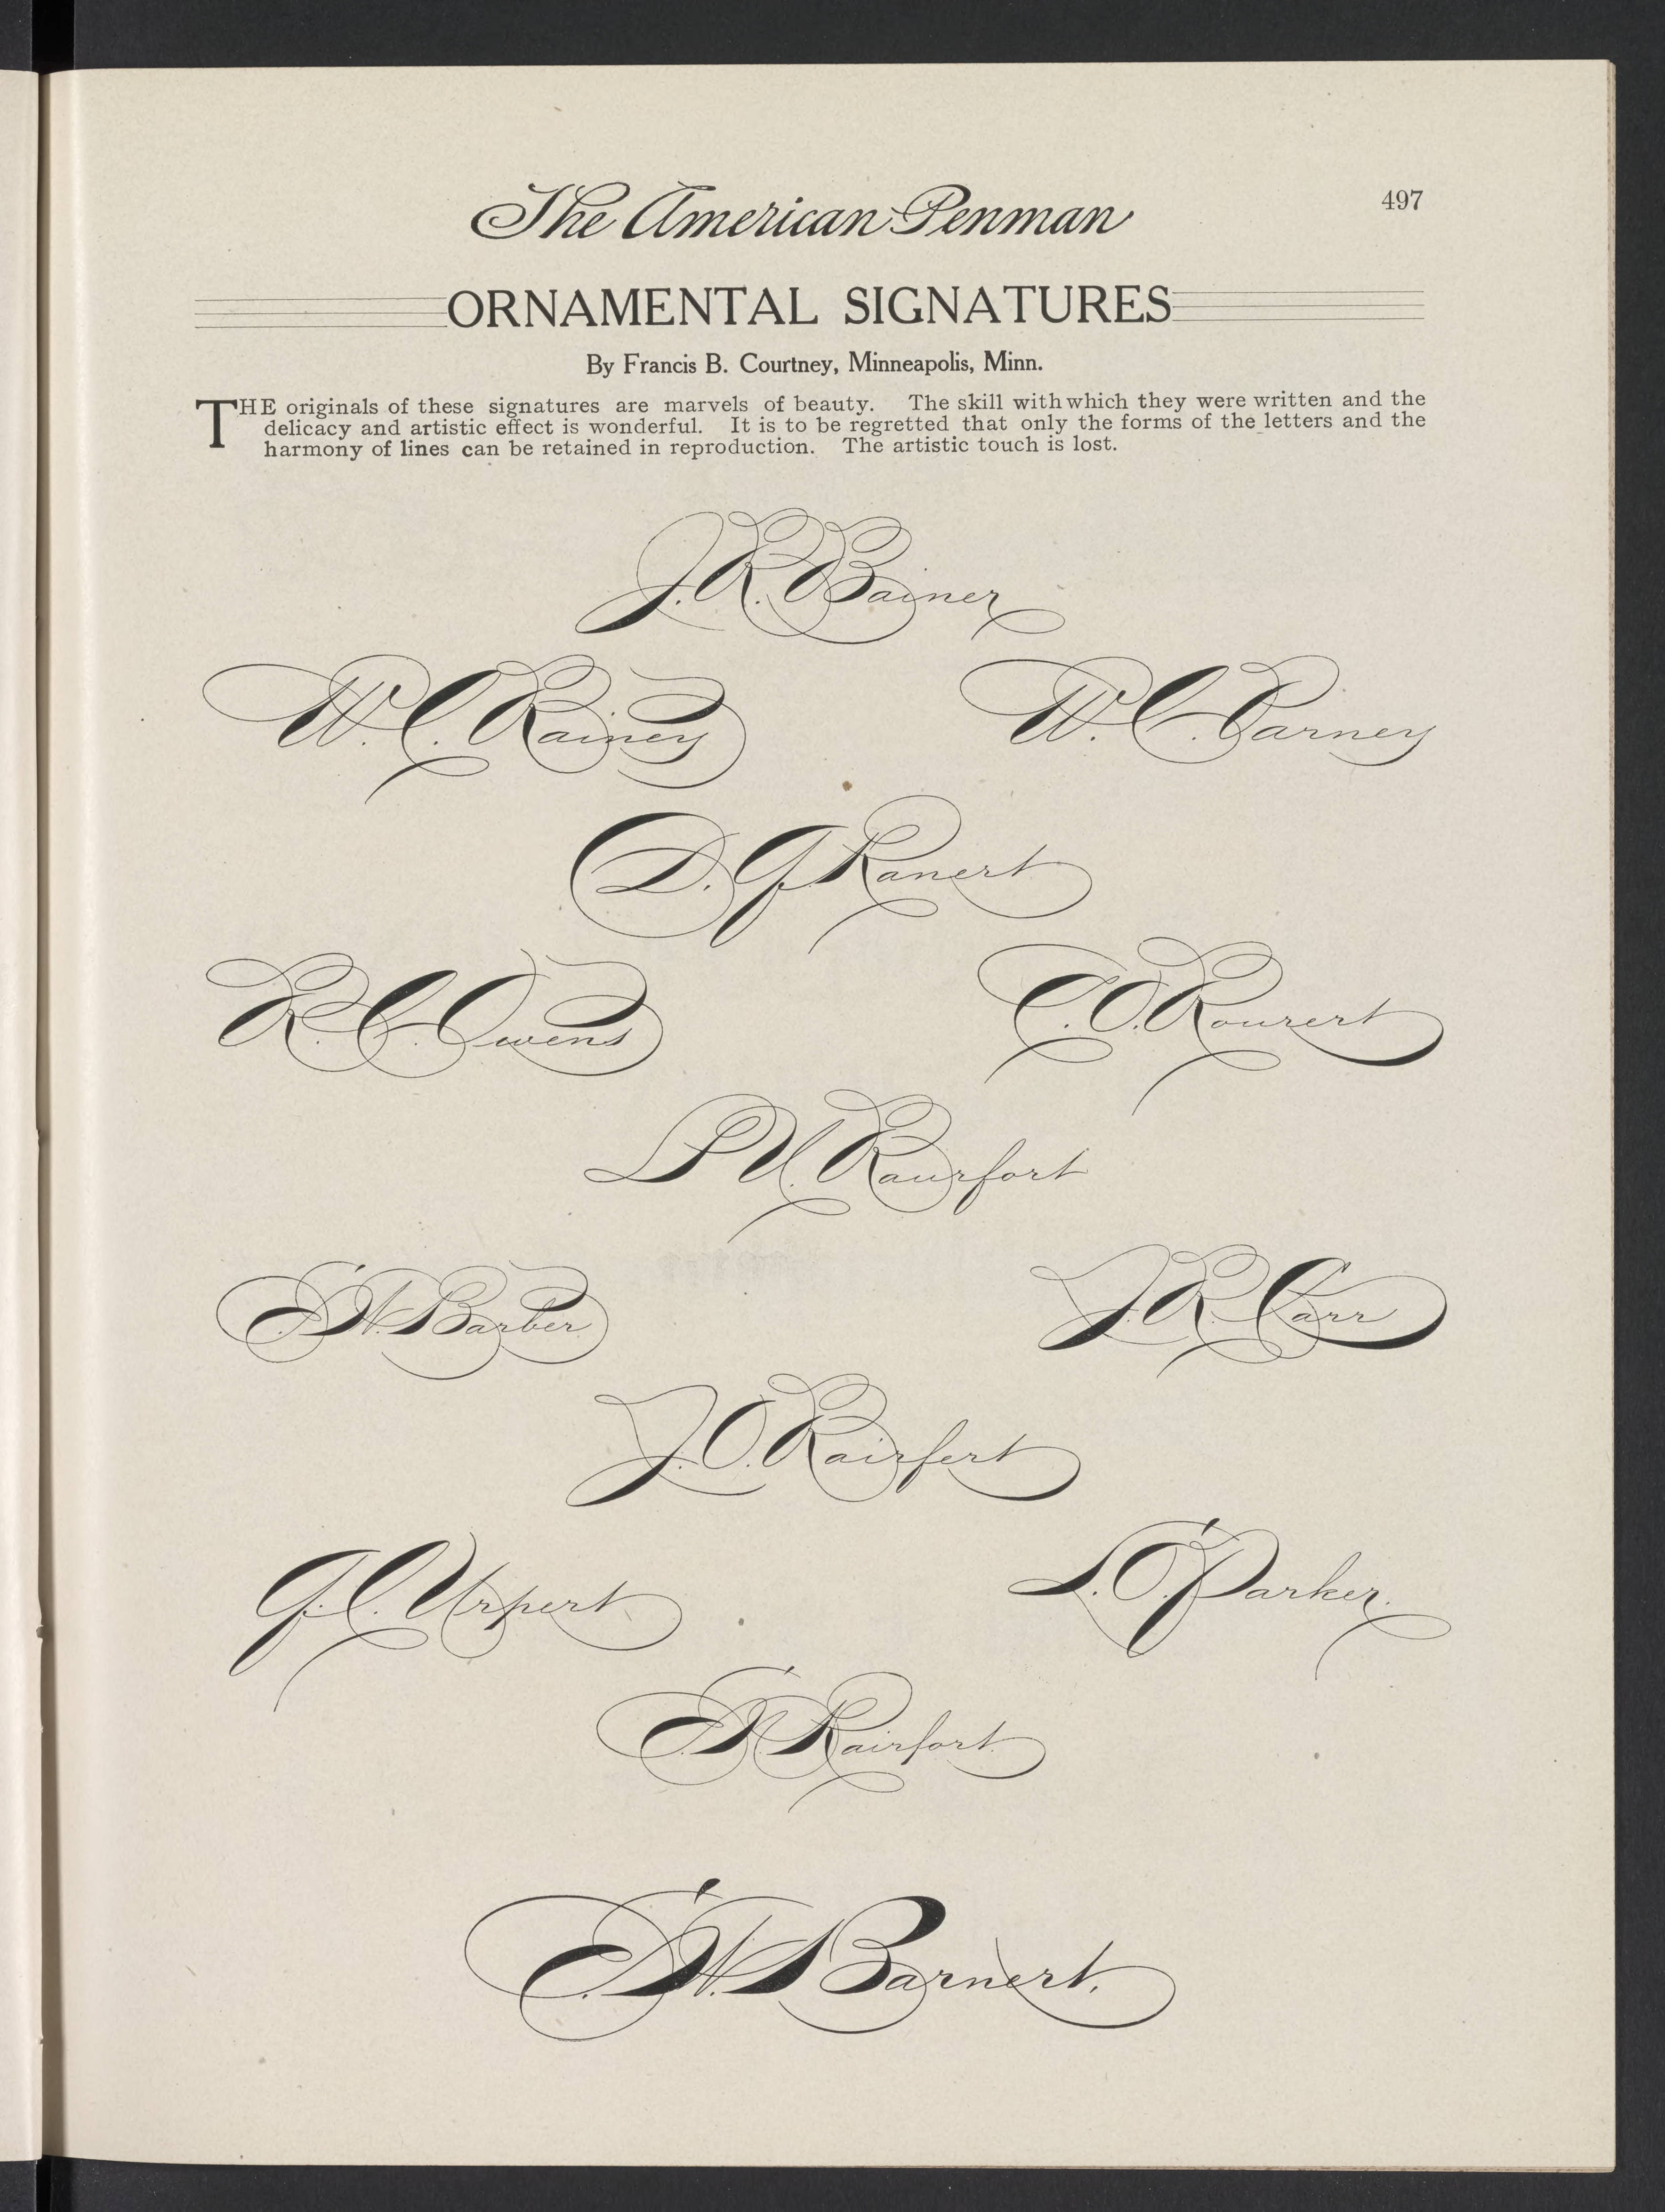 The American Penman
497
ORNAMENTAL SIGNATURES
By Francis B. Courtney, Minneapolis, Minn.
THE originals of these signatures are marvels of beauty. The skill with which they were written and the
delicacy and artistic effect is wonderful. It is to be regretted that only the forms of the letters and the
harmony of lines can be retained in reproduction. The artistic touch is lost.
J. R. Bainer
W. C. Rainey
W. C. Parney
D. G. Ranert
R. C. Owens
C. O. Rourert
P. U. Raurfort
E. N. Barber
J. R. Carr
J. O. Rairfert
G. C. Urpert
S. O. Parker.
E. N. Rairfort.
E. N. Barnert.